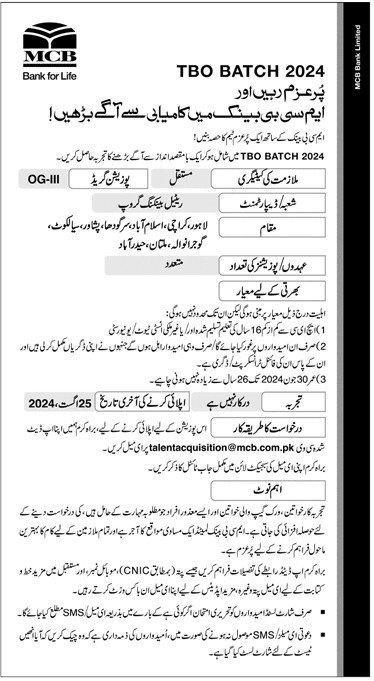 MCB
Bank for Life
MCB Bank Limited
TBO BATCH 2024
پُرعزم رہیں اور
ایم سی بی بینک میں کامیابی سے آگے بڑھیں!
ایم سی بی بینک کے ساتھ ایک پُرعزم ٹیم کا حصہ بنیں!
TBO BATCH 2024 میں شامل ہو کر ایک با مقصد انداز سے آگے بڑھنے کا تجربہ حاصل کریں۔
ملازمت کی کیٹیگری مستقل پوزیشن گریڈ OG-III
شعبہ/ڈیپارٹمنٹ ریٹیل بینکنگ گروپ
مقام لاہور، کراچی، اسلام آباد، سرگودھا، پشاور، سیالکوٹ،
گوجرانوالہ، ملتان، حیدرآباد
عہدوں/پوزیشنز کی تعداد متعدد
بھرتی کے لیے معیار
اہلیت درج ذیل معیار پر مبنی ہوگی لیکن ان تک محدود نہیں ہوگی:
1) ایچ ای سی سے کم از کم 16 سال کی تعلیم تسلیم شدہ اور/یا غیر ملکی انسٹی ٹیوٹ/یونیورسٹی
2) صرف ان امیدواروں پر غور کیا جائے گا/صرف وہی امیدوار اہل ہوں گے جنہوں نے اپنی ڈگریاں مکمل کر لی ہیں اور
ان کے پاس ان کی فائنل ٹرانسکرپٹ/ڈگری ہے۔
3) عمر 30 جون 2024 تک 26 سال سے زیادہ نہیں ہونی چاہیے۔
تجربہ درکار نہیں ہے اپلائی کرنے کی آخری تاریخ 25 اگست، 2024
درخواست کا طریقہ کار اس پوزیشن کے لیے اپلائی کرنے کے لیے، براہ کرم ہمیں اپنا اپ ڈیٹ
شدہ سی وی talentacquisition@mcb.com.pk پر ای میل کریں۔
براہ کرم اپنی ای میل کی سبجیکٹ لائن میں مکمل جاب ٹائٹل کا ذکر کریں۔
اہم نوٹ
تجربہ کار خواتین، ورک گیپ والی خواتین اور ایسے معذور افراد جو مطلوبہ مہارت کے حامل ہیں، کی درخواست دینے کے
لئے حوصلہ افزائی کی جاتی ہے۔ ایم سی بی بینک لمیٹڈ ایک مساوی مواقع کا آجر ہے اور تمام ملازمین کے لیے کام کا بہترین
ماحول فراہم کرنے کے لیے پُرعزم ہے۔
براہ کرم اپ ڈیٹڈ رابطے کی تفصیلات فراہم کریں جیسے پتہ (بمطابق CNIC)، موبائل نمبر، اور مستقبل میں مزید خط و
کتابت کے لیے ای میل پتہ وغیرہ، مزید اپڈیٹس کے لیے اپنا ای میل ان باکس وزٹ کرتے رہیں۔
▪ صرف شارٹ لسٹڈ امیدواروں کو تحریری امتحان اگر کوئی ہے کے بارے میں بذریعہ ای میل/SMS مطلع کیا جائے گا۔
▪ دعوتی ای میلز/SMS موصول نہ ہونے کی صورت میں، اُمیدواروں کی ذمہ داری ہے کہ وہ چیک کریں کہ آیا انھیں
ٹیسٹ کے لئے شارٹ لسٹ کیا گیا ہے۔